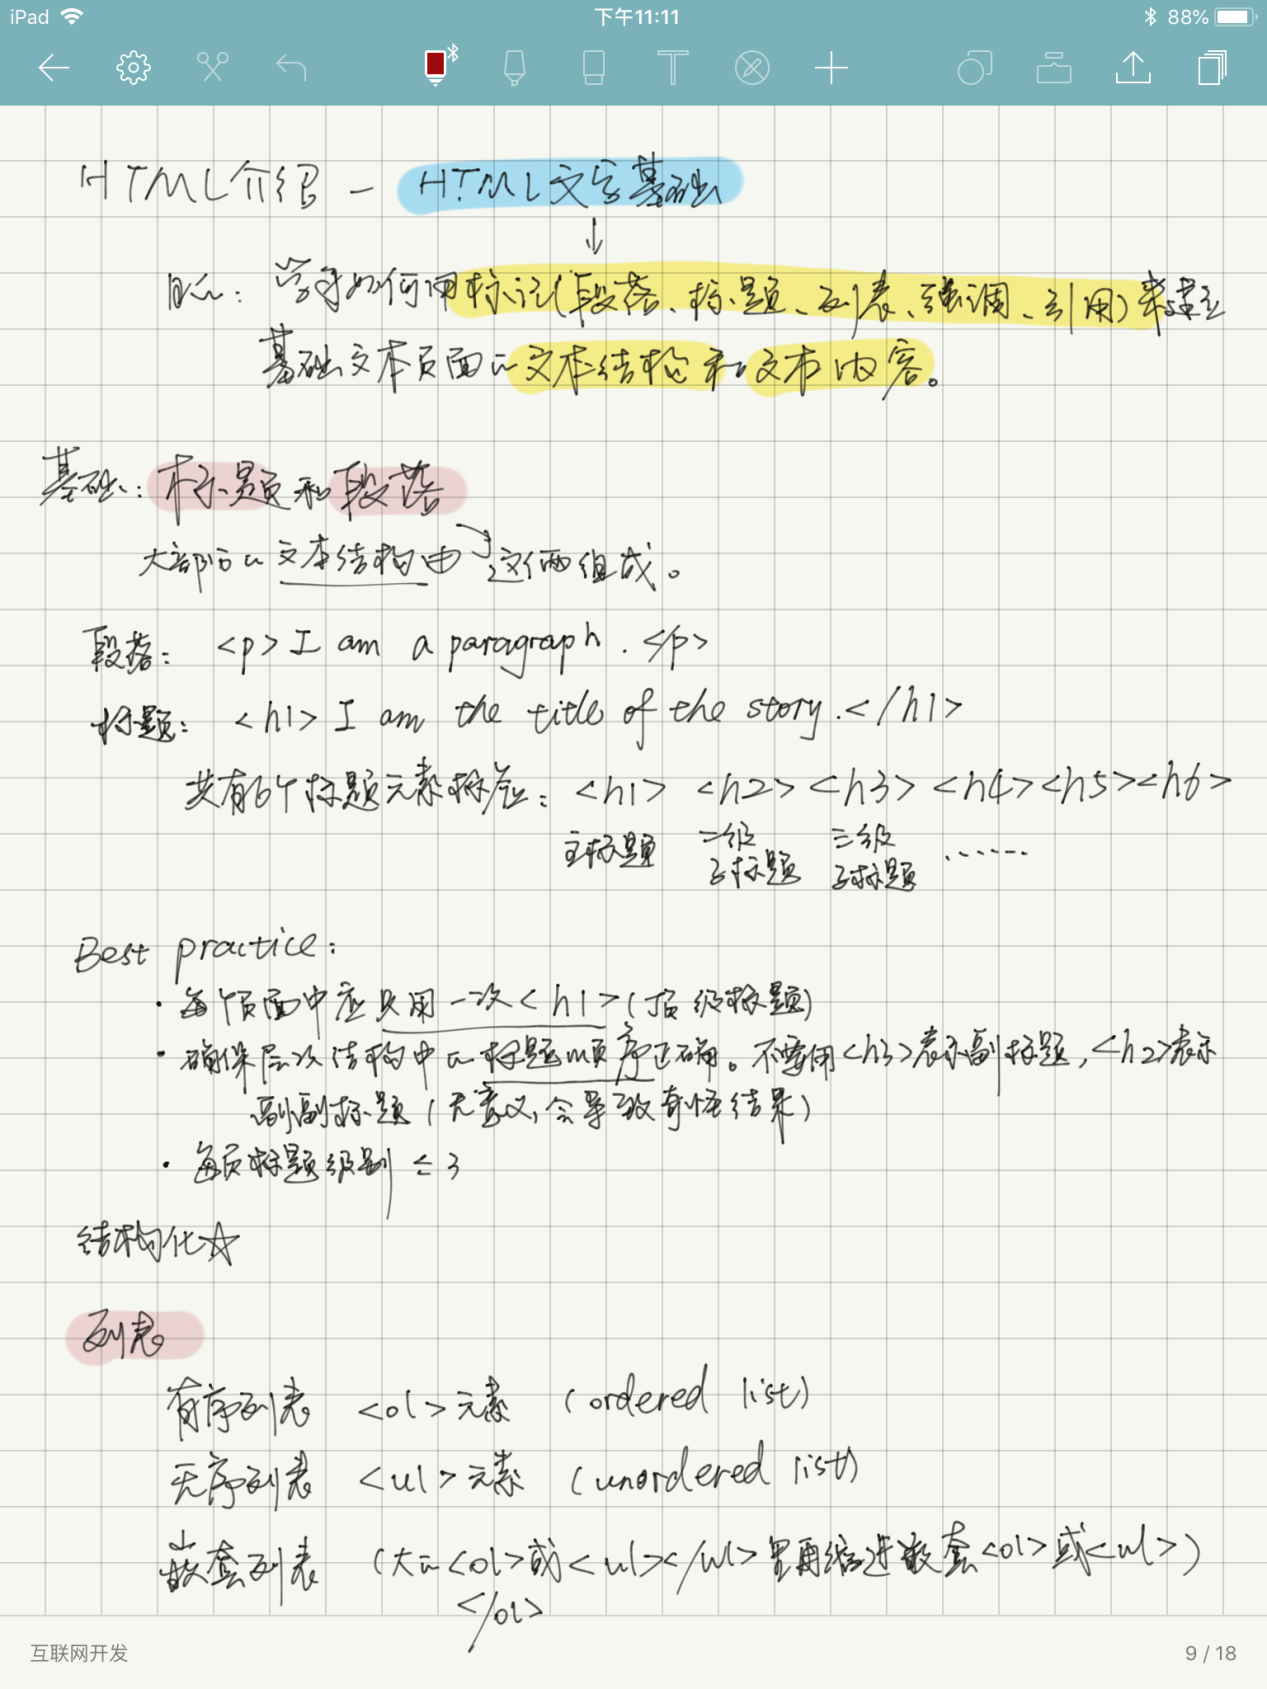 iPad 下午11:11 88%
HTML介绍 — HTML文字基础
↓
目的：学习如何用标记(段落、标题、列表、强调、引用)来建立
基础文本页面的文本结构和文本内容。
基础：标题和段落
大部分的文本结构由这俩组成。
段落：<p>I am a paragraph.</p>
标题：<h1>I am the title of the story.</h1>
共有6个标题元素标签：<h1> <h2> <h3> <h4> <h5> <h6>
主标题 二级子标题 三级子标题 ……
Best practice：
· 每个页面中应只用一次<h1>(顶级标题)
· 确保层次结构中的标题顺序正确。不要用<h3>表示副标题，<h2>表示
副副标题(无意义，会导致奇怪结果)
· 每页标题级别 ≤ 3
结构化☆
列表
有序列表 <ol>元素 (ordered list)
无序列表 <ul>元素 (unordered list)
嵌套列表 (大的<ol>或<ul></ul>里再缩进嵌套<ol>或<ul>)
</ol>
互联网开发 9 / 18